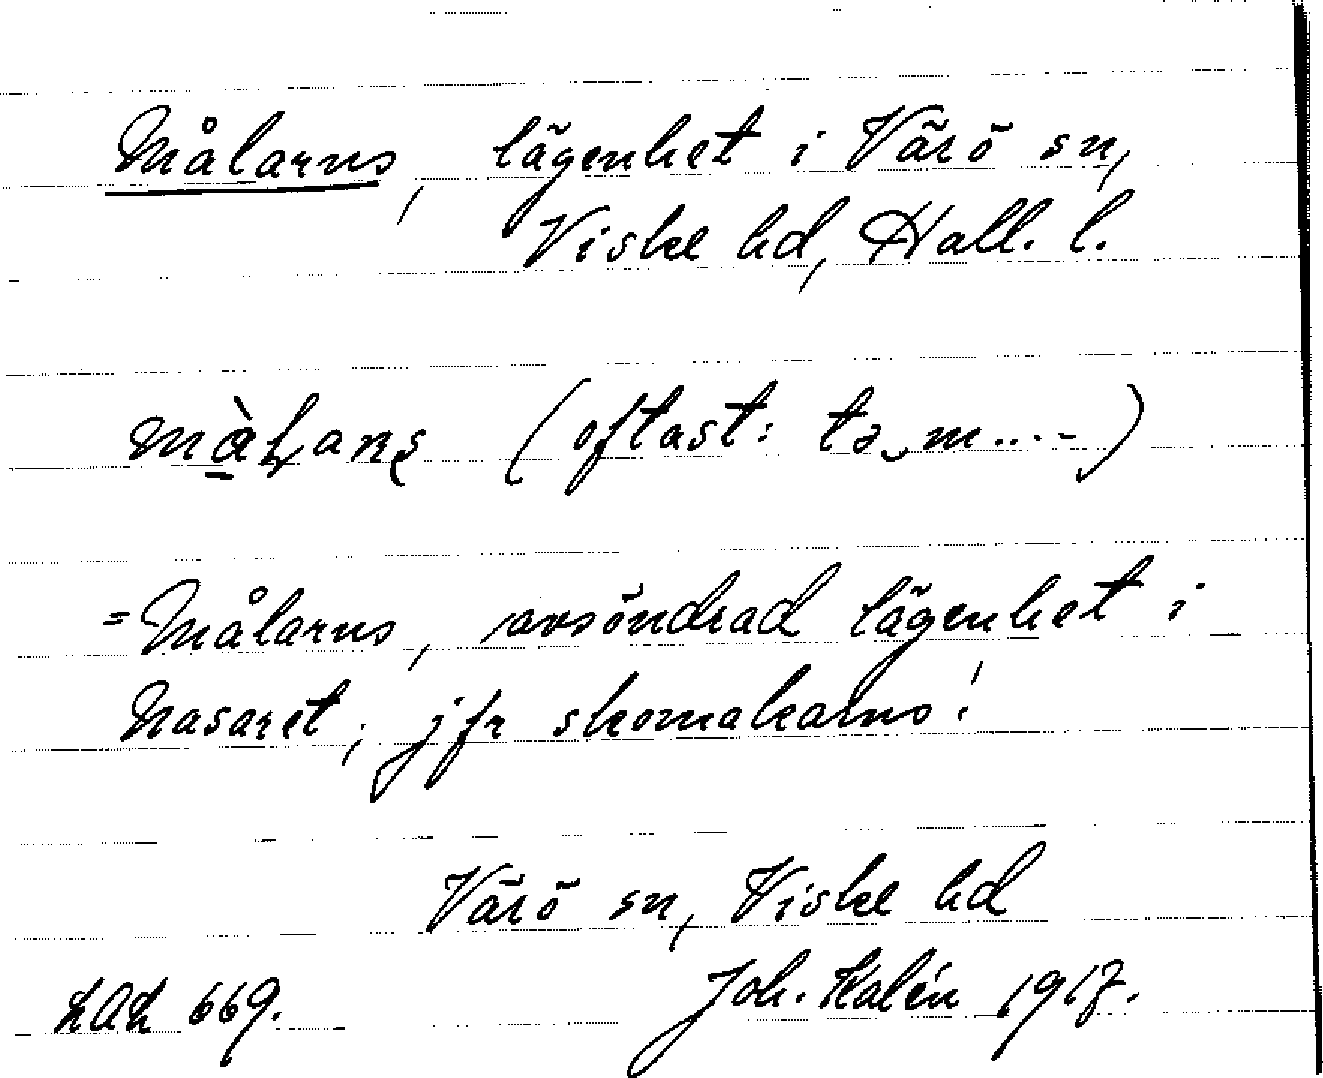 Målarns, lägenhet i Värö sn,
Viske hd, Hall. l.
(oftast: tə‿m....)
=Målarns, avsöndrad lägenhet i
Nasaret; jfr skomakarns!
Värö sn, Viske hd
669. Joh. Kalén 1917.